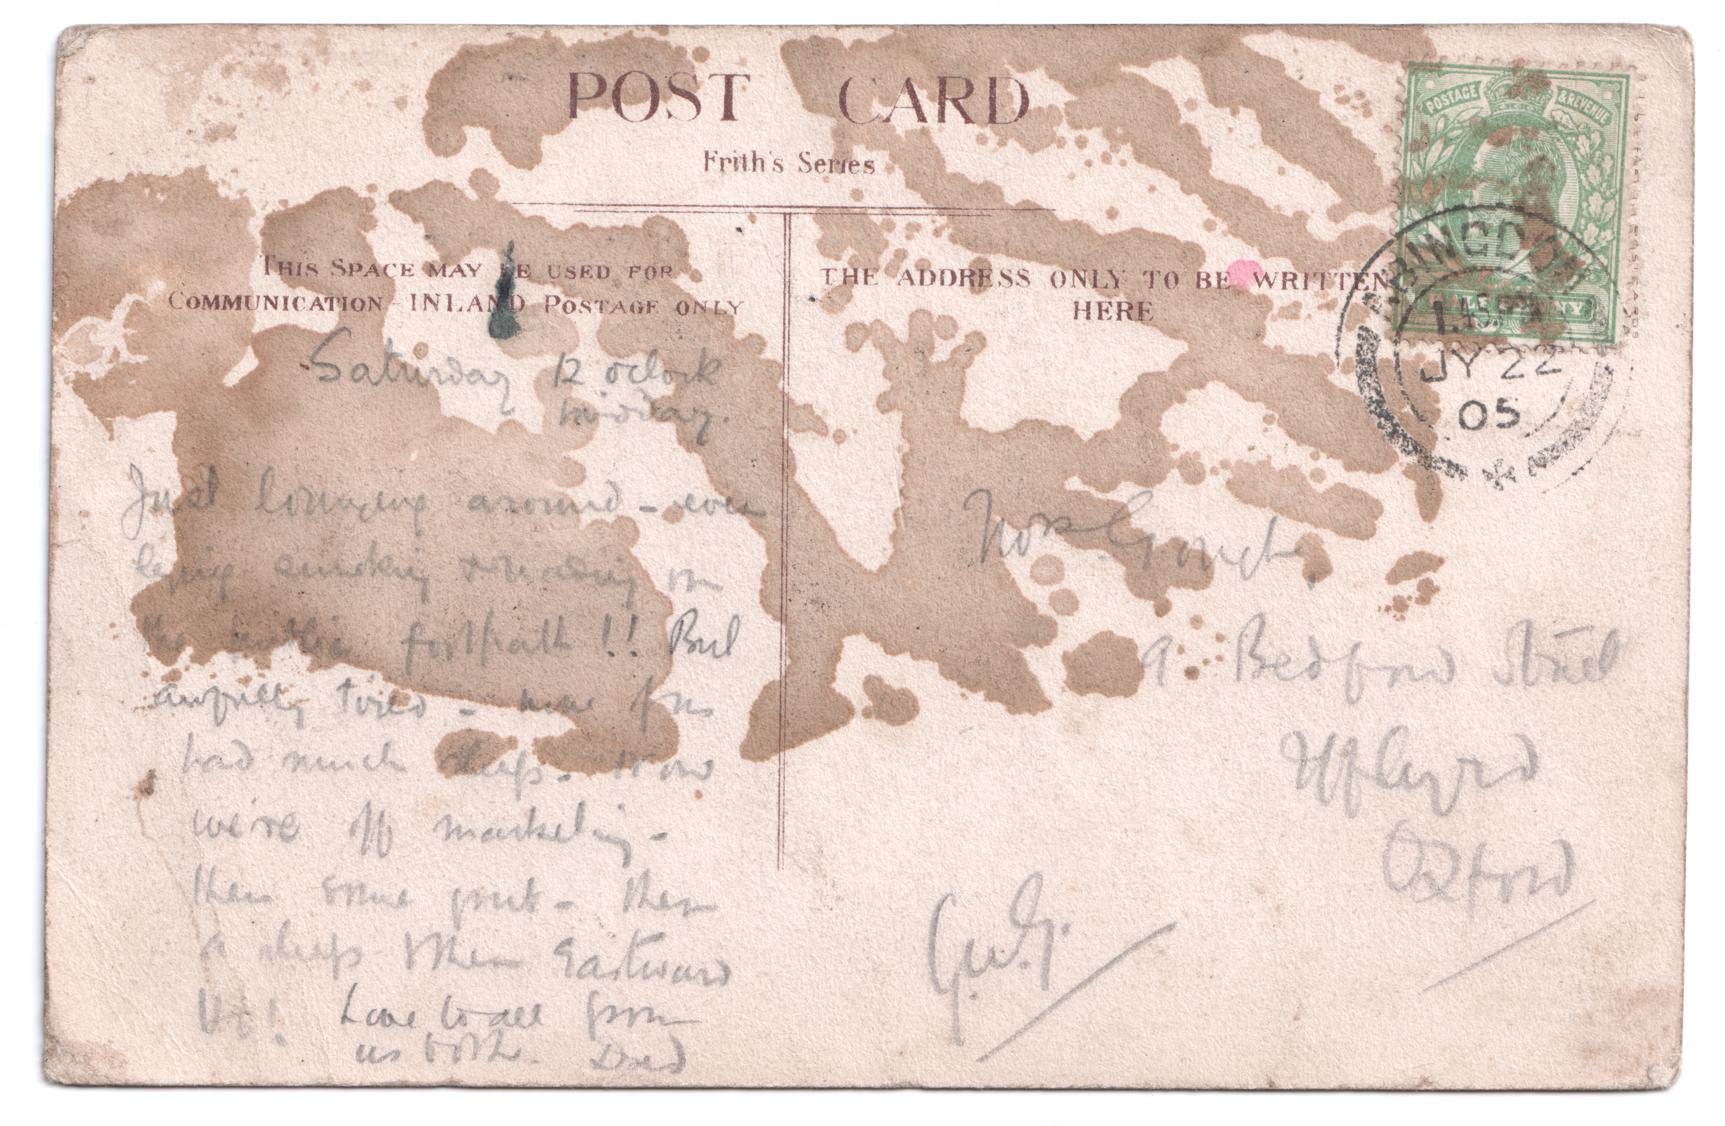 POST CARD
Frith's Series
THIS SPACE MAY BE USED FOR
COMMUNICATION - INLAND POSTAGE ONLY
THE ADDRESS ONLY TO BE WRITTEN
HERE
POSTAGE & REVENUE
ABINGDON
1.45 PM
JY 22
05
Saturday 12 oclock
midday.
Just lounging around - even
lying smoking & reading on
the public footpath !! But
awfully tired - none of us
had much sleep. Now
we're off marketing -
then some grub - then
a sleep & then Eastward
Ho! Love to all from
us both. Dad
Gough,
9 Bedford Street
Iffley Rd
Oxford
G.W.G.